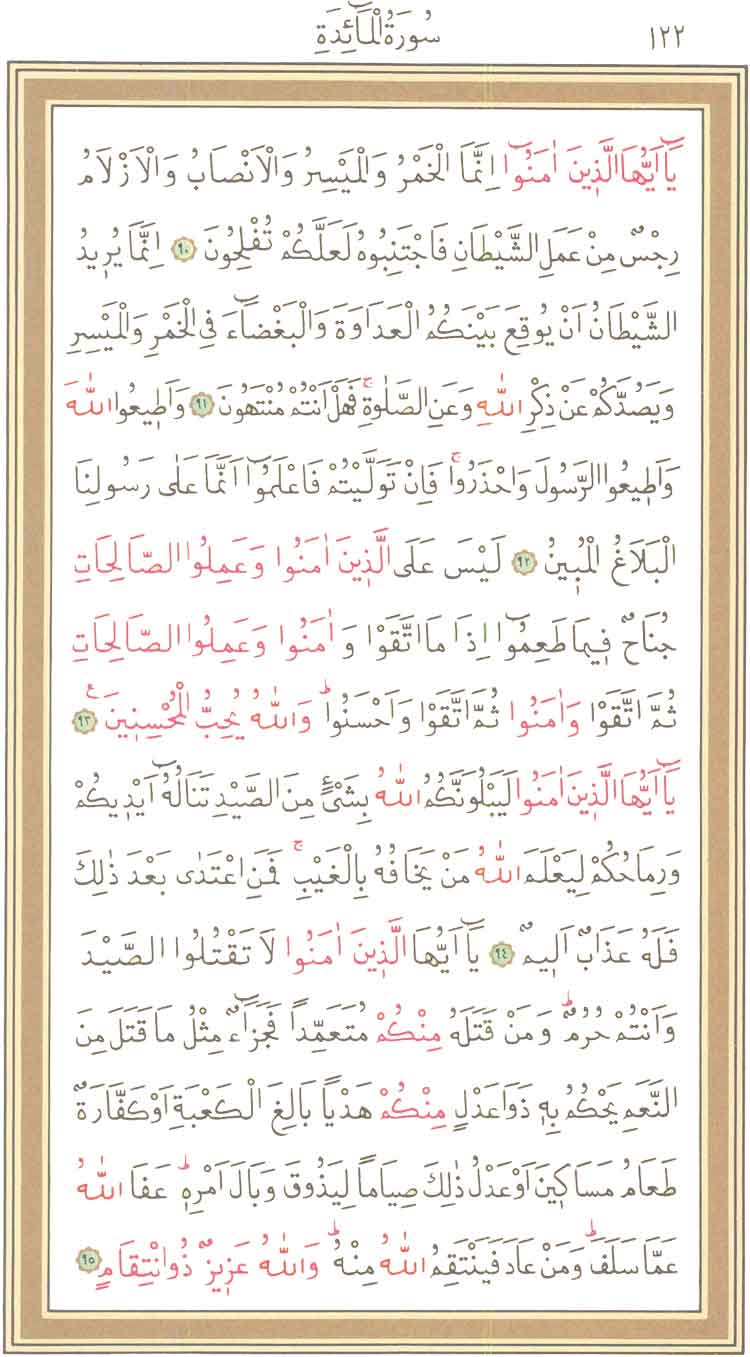 سُورَةُ الْمَٓائِدَةِ ١٢٢
يَٓا اَيُّهَا الَّذ۪ينَ اٰمَنُٓوا اِنَّمَا الْخَمْرُ وَالْمَيْسِرُ وَالْاَنْصَابُ وَالْاَزْلَامُ
رِجْسٌ مِنْ عَمَلِ الشَّيْطَانِ فَاجْتَنِبُوهُ لَعَلَّكُمْ تُفْلِحُونَ ﴿٩٠﴾ اِنَّمَا يُر۪يدُ
الشَّيْطَانُ اَنْ يُوقِعَ بَيْنَكُمُ الْعَدَاوَةَ وَالْبَغْضَٓاءَ فِي الْخَمْرِ وَالْمَيْسِرِ
وَيَصُدَّكُمْ عَنْ ذِكْرِ اللّٰهِ وَعَنِ الصَّلٰوةِۚ فَهَلْ اَنْتُمْ مُنْتَهُونَ ﴿٩١﴾ وَاَط۪يعُوا اللّٰهَ
وَاَط۪يعُوا الرَّسُولَ وَاحْذَرُواۚ فَاِنْ تَوَلَّيْتُمْ فَاعْلَمُٓوا اَنَّمَا عَلٰى رَسُولِنَا
الْبَلَاغُ الْمُب۪ينُ ﴿٩٢﴾ لَيْسَ عَلَى الَّذ۪ينَ اٰمَنُوا وَعَمِلُوا الصَّالِحَاتِ
جُنَاحٌ ف۪يمَا طَعِمُٓوا اِذَا مَا اتَّقَوْا وَاٰمَنُوا وَعَمِلُوا الصَّالِحَاتِ
ثُمَّ اتَّقَوْا وَاٰمَنُوا ثُمَّ اتَّقَوْا وَاَحْسَنُواۜ وَاللّٰهُ يُحِبُّ الْمُحْسِن۪ينَ۟ ﴿٩٣﴾
يَٓا اَيُّهَا الَّذ۪ينَ اٰمَنُوا لَيَبْلُوَنَّكُمُ اللّٰهُ بِشَيْءٍ مِنَ الصَّيْدِ تَنَالُهُٓ اَيْد۪يكُمْ
وَرِمَاحُكُمْ لِيَعْلَمَ اللّٰهُ مَنْ يَخَافُهُ بِالْغَيْبِۚ فَمَنِ اعْتَدٰى بَعْدَ ذٰلِكَ
فَلَهُ عَذَابٌ اَل۪يمٌ ﴿٩٤﴾ يَٓا اَيُّهَا الَّذ۪ينَ اٰمَنُوا لَا تَقْتُلُوا الصَّيْدَ
وَاَنْتُمْ حُرُمٌۜ وَمَنْ قَتَلَهُ مِنْكُمْ مُتَعَمِّداً فَجَزَٓاءٌ مِثْلُ مَا قَتَلَ مِنَ
النَّعَمِ يَحْكُمُ بِه۪ ذَوَا عَدْلٍ مِنْكُمْ هَدْياً بَالِغَ الْكَعْبَةِ اَوْ كَفَّارَةٌ
طَعَامُ مَسَاك۪ينَ اَوْ عَدْلُ ذٰلِكَ صِيَاماً لِيَذُوقَ وَبَالَ اَمْرِه۪ۜ عَفَا اللّٰهُ
عَمَّا سَلَفَۜ وَمَنْ عَادَ فَيَنْتَقِمُ اللّٰهُ مِنْهُۜ وَاللّٰهُ عَز۪يزٌ ذُو انْتِقَامٍ ﴿٩٥﴾